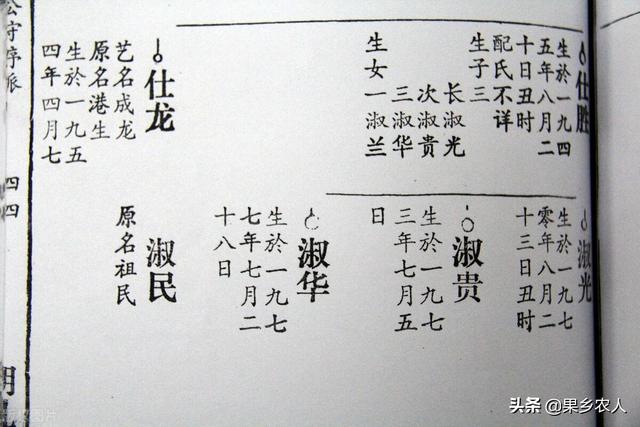 仕胜
生於一九四
五年八月二
十日丑时
配氏不详
生子三
长淑光
次淑贵
三淑华
生女一淑兰
仕龙
艺名成龙
原名港生
生於一九五
四年四月七
淑光
生於一九七
零年八月二
十三日丑时
淑贵
生於一九七
三年七月五
日
淑华
生於一九七
七年七月二
十八日
淑民
原名祖民
四四
头条 @果乡农人